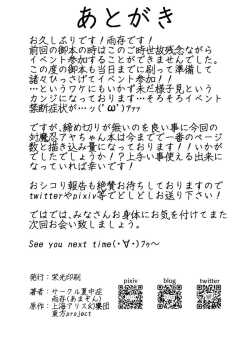 あとがき
お久しぶりです！雨存です！
前回の御本の時はこのご時世故残念ながら
イベント参加することができませんでした。
この度の御本も当日までに刷って準備して
諸々ひっさげてイベント参加！！
…というワケにもいかず未だ様子見という
カンジになっております…そろそろイベント
禁断症状が…ッ(ﾟωﾟ)ｱｧｧ
ですが、締め切りが無いのを良い事に今回の
対魔忍アヤちゃん本は今までで一番のページ
数と描き込み量になっております！！いかが
でしたでしょうか！？上手い事使える出来に
なっていれば幸いです！
おシコリ報告も絶賛お待ちしておりますので
twitterやpixiv等でどしどしお送り下さい！
ではでは、みなさんお身体にお気を付けてまた
次回お会い致しましょう。
See you next time(･∀･)ﾌｩ～
発行：栄光印刷
著者：サークル夏中症
雨存(あまぞん)
原作：上海アリス幻樂団
東方project
pixiv
blog
twitter